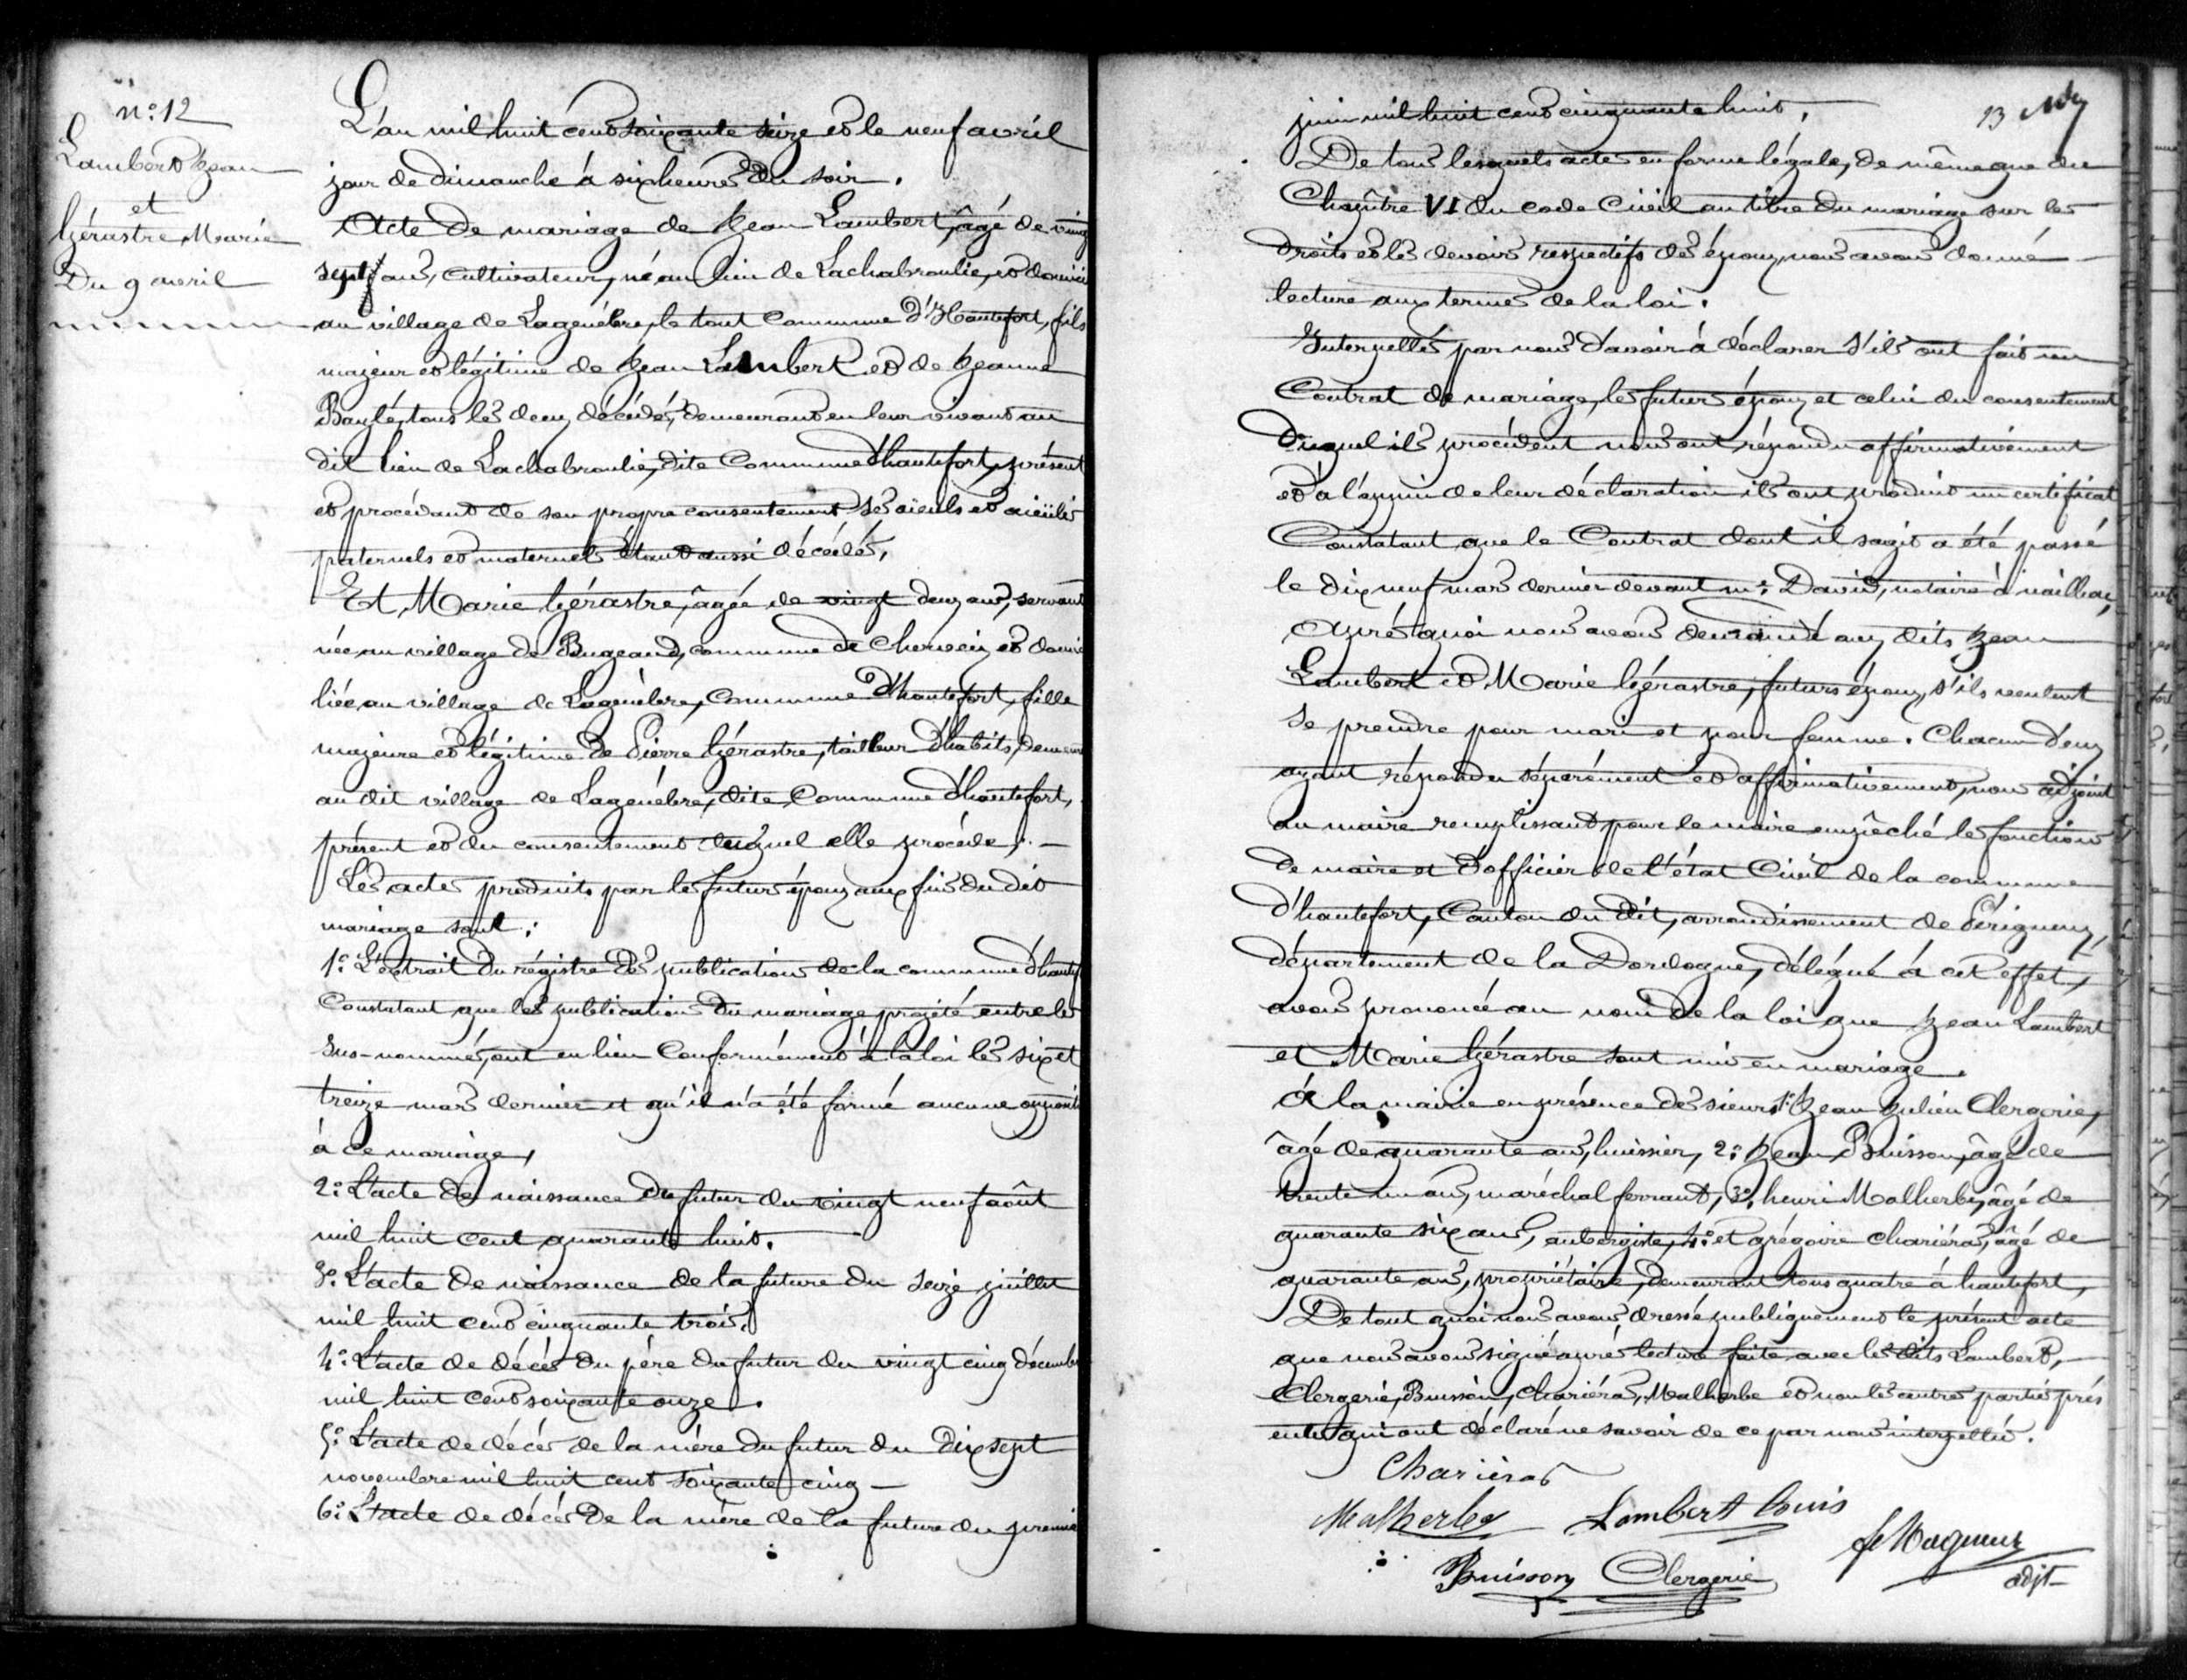 n° 12
Lambert Jean
et
Gérastre Marie
Du 9 avril
L'an mil huit cent soixante seize et le neuf avril
jour de dimanche à six heures du soir.
Acte de mariage de Jean Lambert, âgé de vingt
sept ans, cultivateur, né au lieu de Lachabroulie, et domici
au village de Lagenèbre, le tout Commune d'Hautefort, fils
majeur et légitime de Jean Lambert et de Jeanne
Bayle, tous les deux décédés, demeurant en leur vivant au
dit lieu de Lachabroulie, dite Commune d'hautefort, présent
et procédant de son propre consentement ses aïeuls et aïeules
paternels et maternels étant aussi décédés,
Et Marie Gérastre, âgée de vingt deux ans, servante
née au village de Bugeaud, commune de Cherveix et domici
liée au village de Lagenèbre, Commune d'hautefort, fille
majeure et légitime de Pierre Gérastre, tailleur d'habits, demeurt
au dit village de Lagenèbre, dite Commune d'hautefort,
présent et du consentement duquel elle procède ;
Les actes produits par les futurs époux aux fins du dit
mariage sont :
1° L'extrait du régistre des publications de la commune d'hautef
Constatant que les publications du mariage projeté entre les
sus-nommés, ont eu lieu Conformément à la loi les six et
treize mars dernier et qu'il n'a été formé aucune oppositi
à ce mariage,
2° L'acte de naissance du futur du vingt neuf août
mil huit cent quarante huit.
3° L'acte de naissance de la future du seize juillet
mil huit cent cinquante trois.
4° L'acte de décès du père du futur du vingt cinq décembre
mil huit cent soixante onze.
5° L'acte de décès de la mère du futur du dix sept
novembre mil huit cent soixante cinq
6° L'acte de décès de la mère de la future du premier
13
juin mil huit cent cinquante huit.
De tous lesquels actes en forme légale, de même que du
Chapitre VI du code Civil au titre du mariage sur les
droits et les devoirs respectifs des époux, nous avons donné
lecture aux termes de la loi.
Interpellés par nous d'avoir à déclarer s'ils ont fait un
Contrat de mariage, les futurs époux et celui du consentement
duquel ils procèdent nous ont répondu affirmativement
et à l'appui de leur déclaration ils ont produit un certificat
Constatant que le Contrat dont il sagit a été passé
le dix neuf mars dernier devant m° David, notaire à nailhac,
Après quoi nous avons demandé aux dits Jean
Lambert et Marie Gérastre, futurs époux, s'ils veulent
se prendre pour mari et pour femme. Chacun d'eux
ayant répondu séparément et affirmativement, nous adjoint
au maire remplissant pour le maire empêché les fonctions
de maire et d'officier de l'état Civil de la commune
d'hautefort, Canton du dit, arrondissement de Périgueux,
département de la Dordogne, délégué à cet effet,
avons prononcé au nom de la loi que Jean Lambert
et Marie Gérastre sont unis en mariage.
A la mairie en présence des sieurs 1° Jean Julien Clergerie,
âgé de quarante ans, huissier, 2° Jean Buisson, âgé de
trente un ans, maréchal ferrant, 3° henri Malherbe, âgé de
quarante six ans, aubergiste, 4° et grégoire Chariéras, âgé de
quarante ans, propriétaire, demeurant tous quatre à hautefort,
De tout quoi nous avons dressé publiquement le présent acte
que nous avons signé après lecture faite avec les dits Lambert,
Clergerie, Buisson, Chariéras, Malherbe et non les autres parties prés
entes qui ont déclaré ne savoir de ce par nous interpellés.
Chariéras
Malherbe Lambert Louis
Buisson Clergerie
adjt